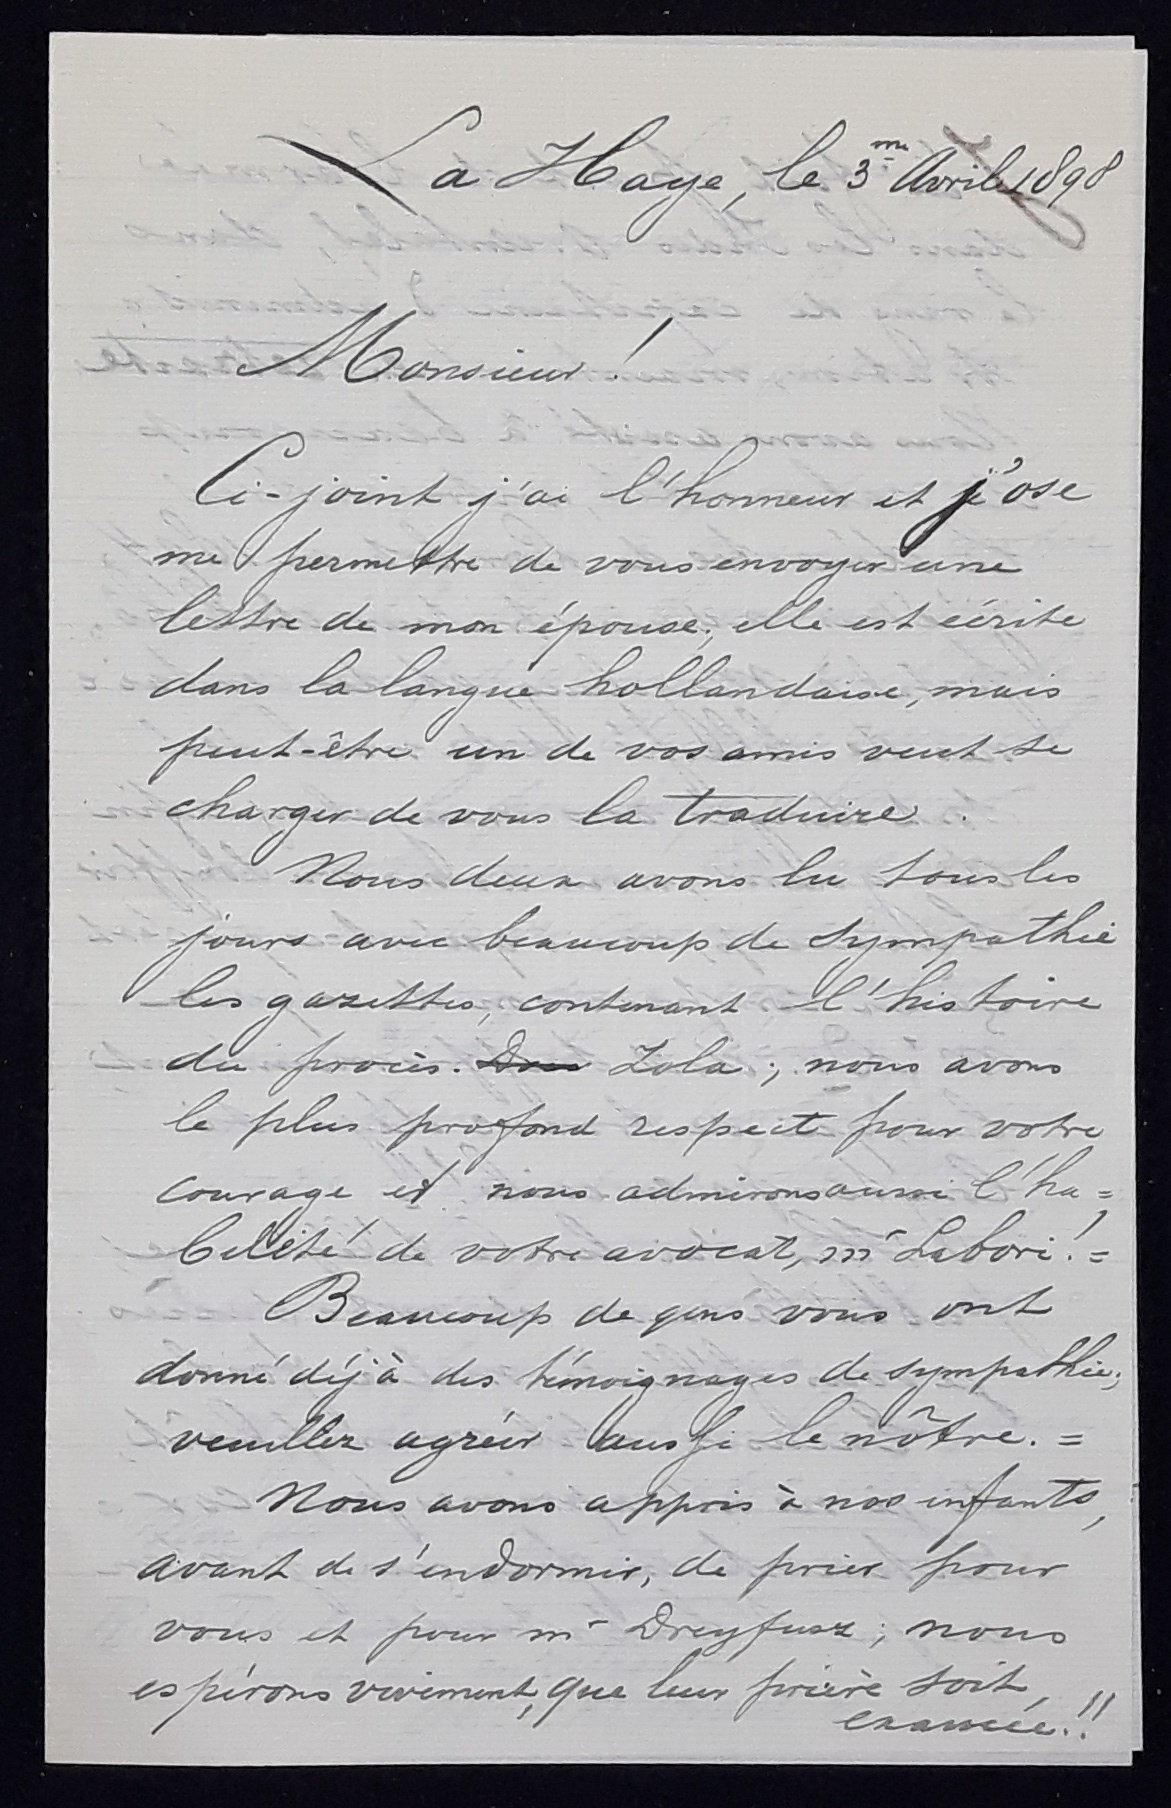 La Haye, le 3me Avril 1898
Monsieur!
Ci-joint j'ai l'honneur et j'ose
me permettre de vous envoyer une
lettre de mon épouse; elle est écrite
dans la langue hollandaise, mais
peut-être un de vos amis veut se
charger de vous la traduire.
Nous deux avons lu tous les
jours avec beaucoup de sympathie
les gazettes, contenant l'histoire
du procès. Zola; nous avons
le plus profond respect pour votre
courage et nous admirons aussi l'ha=
bilité de votre avocat, mr Labori!=
Beaucoup de gens vous ont
donné déjà des témoignages de sympathie;
veuillez agréer aussi le nôtre.=
Nous avons appris à nos enfants,
avant de s'endormir, de prier pour
vous et pour mr Dreyfusz; nous
espérons vivement, que leur prière soit
exaucée.!!